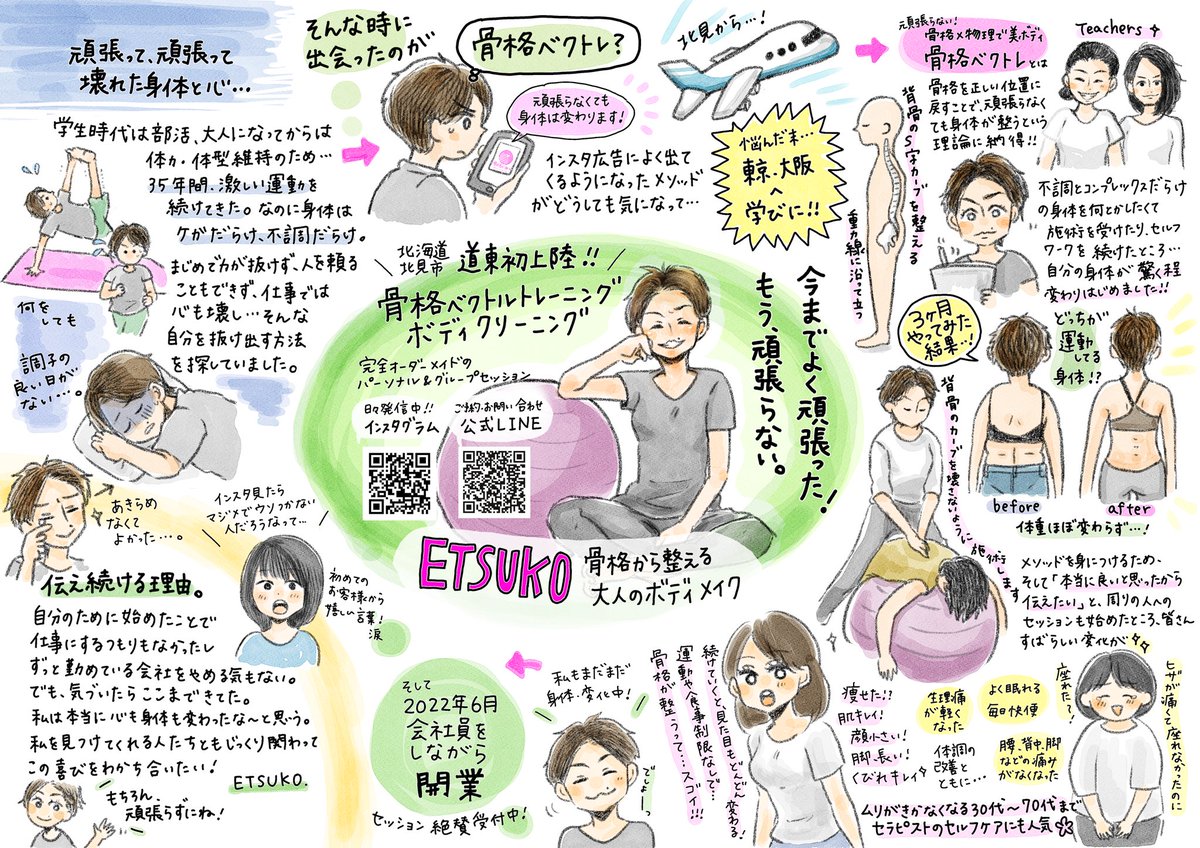 頑張って、頑張って
壊れた身体と心…
学生時代は部活、大人になってからは
体力・体型維持のため…
35年間、激しい運動を
続けてきた。なのに身体は
ケガだらけ、不調だらけ。
まじめで力が抜けず、人を頼る
こともできず、仕事では
心も壊し…そんな
自分を抜け出す方法
を探していました。
何を
しても
調子の
良い日が
ない…。
そんな時に
出会ったのが
骨格ベクトレ?
頑張らなくても
身体は変わります!
インスタ広告によく出て
くるようになったメソッド
がどうしても気になって…
北見から…!
悩んだ末…
東京、大阪
へ
学びに!!
頑張らない!
骨格×物理で美ボディ
骨格ベクトレとは
骨格を正しい位置に
戻すことで、頑張らなく
ても身体が整うという
理論に納得!!
Teachers
背骨のS字カーブを整える
重力線に沿って立つ
不調とコンプレックスだらけ
の身体を何とかしたくて
施術を受けたり、セルフ
ワークを続けたところ…
自分の身体が驚く程
変わりはじめました!!
3ヶ月
やってみた
結果…!
どっちが
運動
してる
身体!?
before
after
体重ほぼ変わらず…!
背骨のカーブを壊さないように
施術します
メソッドを身につけるため、
そして「本当に良いと思ったから
伝えたい」と、周りの人への
セッションも始めたところ、皆さん
すばらしい変化が
ヒザが痛くて座れなかったのに
座れた〜!
よく眠れる
毎日快便
生理痛
が軽く
なった
腰、背中、脚
などの痛み
がなくなった
体調の
改善と
ともに…
痩せた!?
肌キレイ!
顔小さい!
脚、長い!
くびれキレイ
ムリがきかなくなる30代〜70代まで
セラピストのセルフケアにも人気
続けていくと、見た目もどんどん変わる!
運動や食事制限なしで…
骨格が整うって…スゴイ!!!
私もまだまだ
身体、変化中!
でしょー
そして
2022年6月
会社員を
しながら
開業
セッション絶賛受付中!
北海道
北見市
道東初上陸!!
骨格ベクトルトレーニング
ボディクリーニング
完全オーダーメイドの
パーソナル&グループセッション
日々発信中!!
インスタグラム
ご予約・お問い合わせ
公式LINE
今までよく頑張った!
もう、頑張らない。
ETSUKO
骨格から整える
大人のボディメイク
インスタ見たら
マジメでウソつかない
人だろうなって…
初めての
お客様から
嬉しい言葉!
涙
あきらめ
なくて
よかった…。
伝え続ける理由。
自分のために始めたことで
仕事にするつもりもなかったし
ずっと勤めている会社をやめる気もない。
でも、気づいたらここまできてた。
私は本当に心も身体も変わったな〜と思う。
私を見つけてくれる人たちともじっくり関わって
この喜びをわかち合いたい!
ETSUKO.
もちろん、
頑張らずにね!